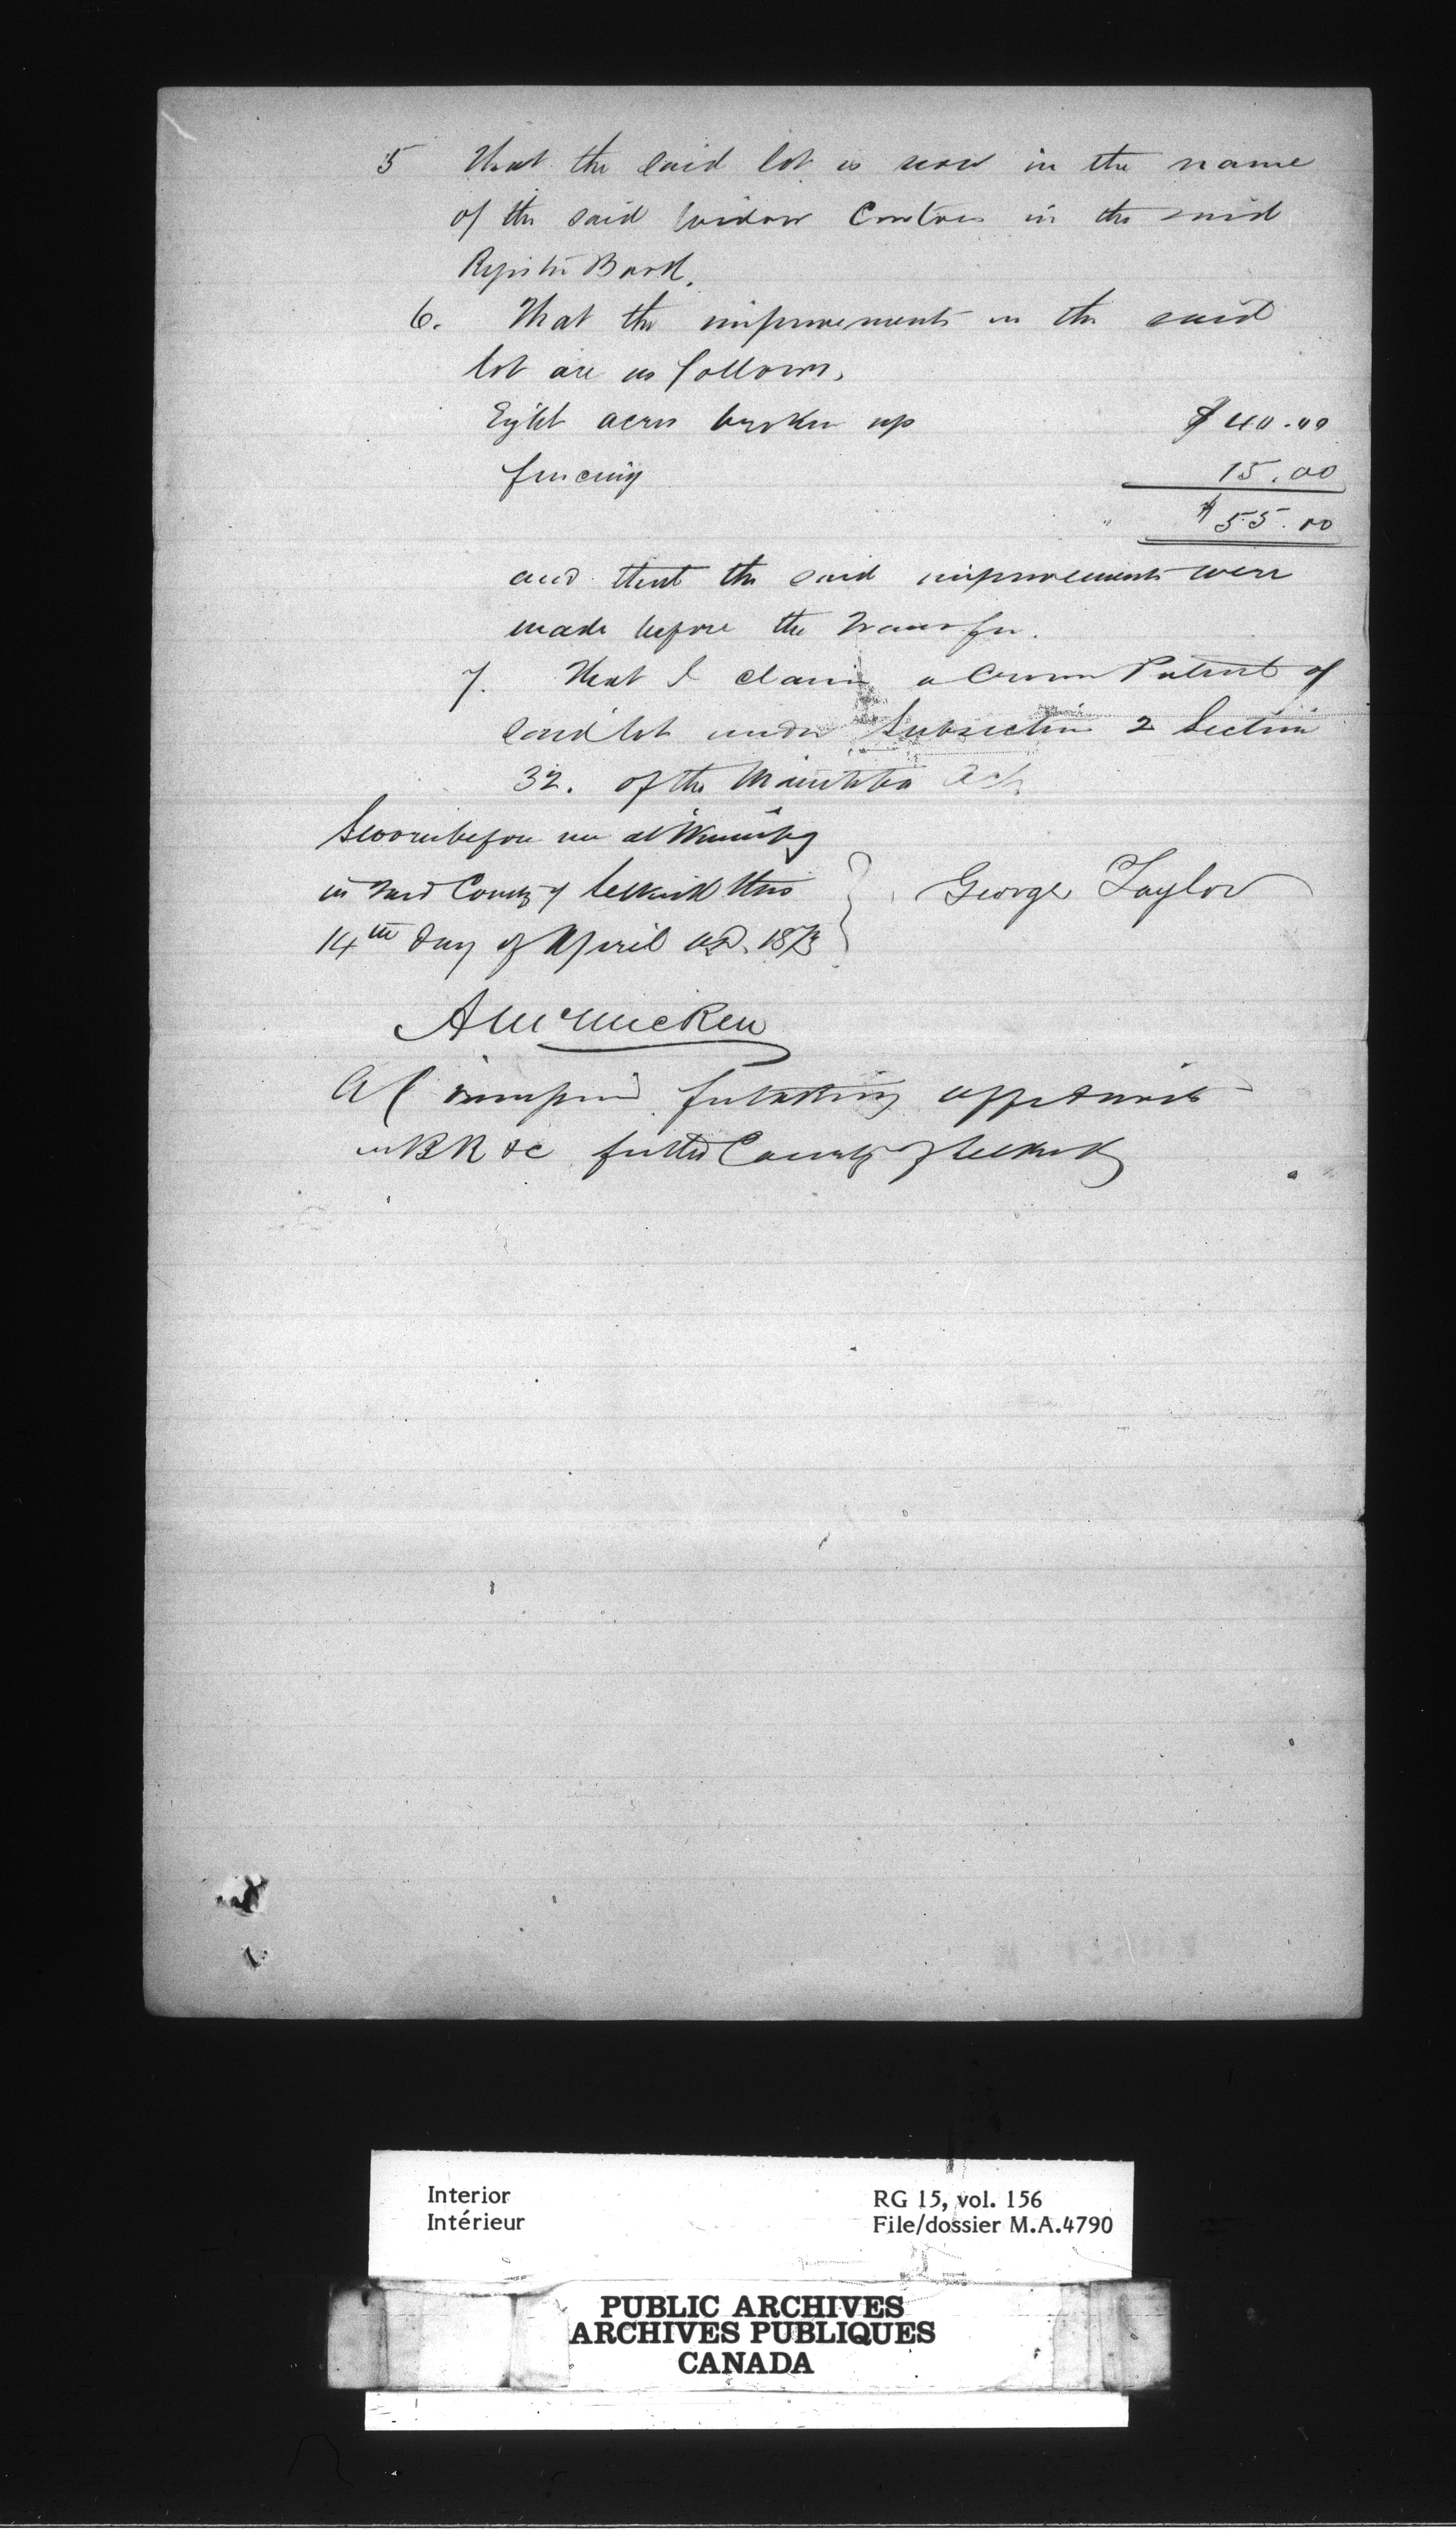 5 That the said lot is now in the name
of the said widow in the said
Register Book.
6. That the improvements on the said
lot are as follows,
Eight acres broken up $40.00
fencing 15.00
$55.00
and that the said improvements were
made before the transfer.
7. That I claim a Crown Patent of
said lot under Subsection 2 Section
32. of the Manitoba Act.
Sworn before me at Winnipeg
in said County of Selkirk this
14th day of April AD. 1873
George Taylor
A McMicken
A Commr for taking affidavits
in BR &c for the County of Selkirk
Interior
Intérieur
RG 15, vol. 156
File/dossier M.A.4790
PUBLIC ARCHIVES
ARCHIVES PUBLIQUES
CANADA